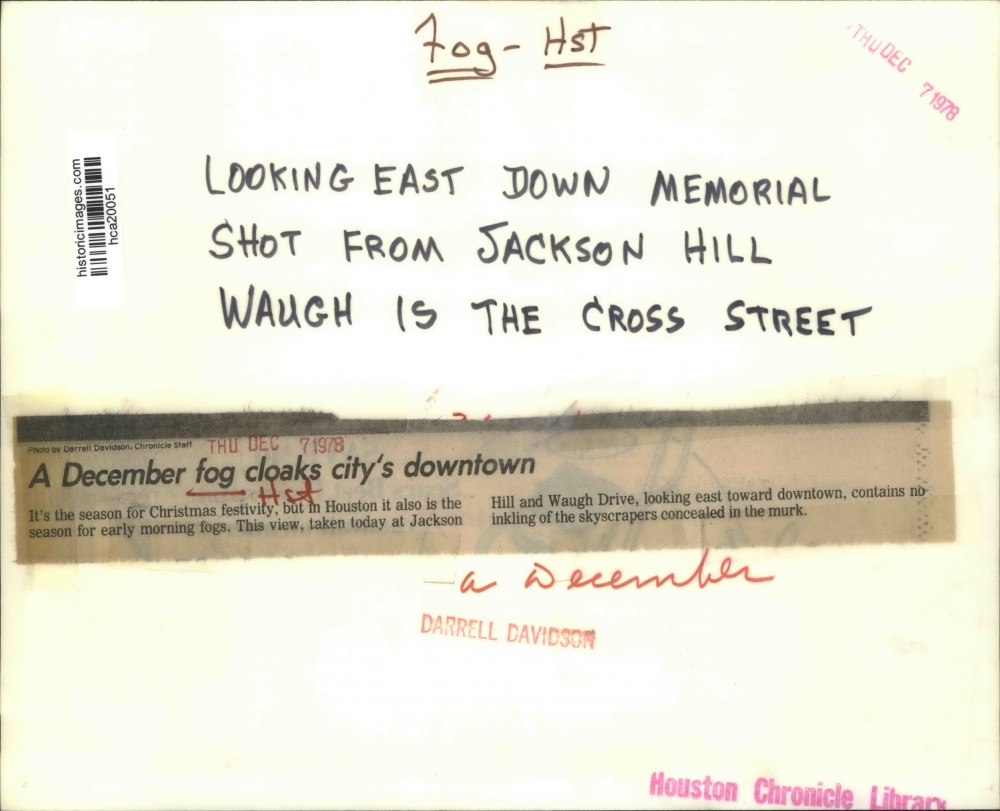 Fog - Hst
THU DEC 7 1978
historicimages.com
hca20051
LOOKING EAST DOWN MEMORIAL
SHOT FROM JACKSON HILL
WAUGH IS THE CROSS STREET
Photo by Darrell Davidson, Chronicle Staff
THU DEC 7 1978
A December fog cloaks city's downtown
Hst
It's the season for Christmas festivity, but in Houston it also is the
season for early morning fogs. This view, taken today at Jackson
Hill and Waugh Drive, looking east toward downtown, contains no
inkling of the skyscrapers concealed in the murk.
a December
DARRELL DAVIDSON
Houston Chronicle Library